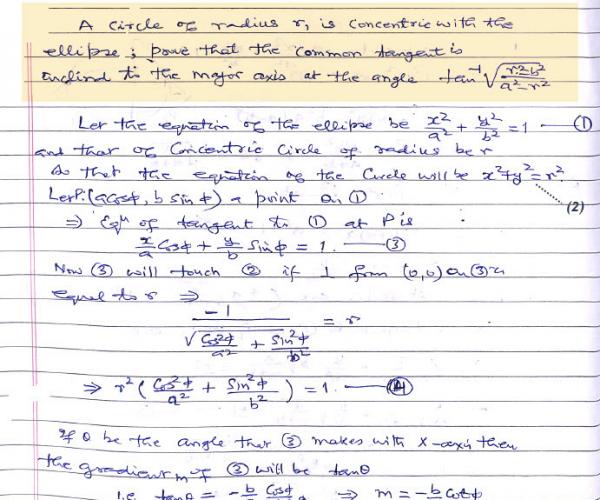 A circle of radius r, is concentric with the
ellipse ; prove that the common tangent is
inclind to the major axis at the angle tan⁻¹ √((r²-b²)/(a²-r²))
Let the equation of the ellipse be x²/a² + y²/b² = 1 — (1)
and that of Concentric Circle of radius be r
so that the equation of the Circle will be x²+y²=r².
(2)
Let P(a cosϕ, b sin ϕ) a point on (1)
⇒ Eqⁿ of tangent to (1) at P is
x/a Cosϕ + y/b Sinϕ = 1. — (3)
Now (3) will touch (2) if ⊥ from (0,0) on (3) is
equal to r ⇒
-1/√(Cos²ϕ/a² + Sin²ϕ/b²) = r
⇒ r² (Cos²ϕ/a² + Sin²ϕ/b²) = 1. — (4)
If θ be the angle that (3) makes with X-axis then
the gradient m of (3) will be tanθ
i.e. tanθ = -b/a Cosϕ ⇒ m = -b cotϕ